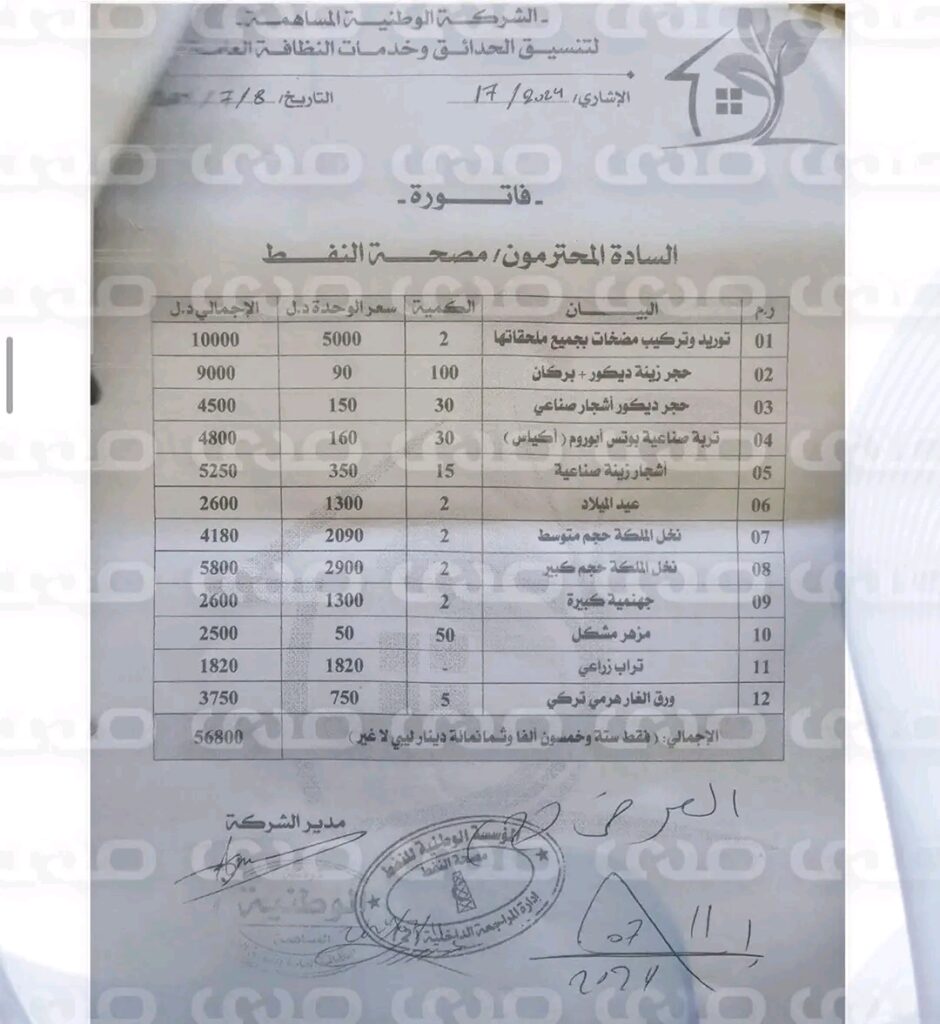 ـ الشركة الوطنية المساهمة ـ
لتنسيق الحدائق وخدمات النظافة العامـ
الإشاري: 17 / 2024 التاريخ: 8 / 7 /
ـ فاتـــورة ـ
السادة المحترمون/ مصحـــة النفـــط
ر.م البيـــــان الكمية سعر الوحدة د.ل الإجمالي د.ل
01 توريد وتركيب مضخات بجميع ملحقاتها 2 5000 10000
02 حجر زينة ديكور + بركان 100 90 9000
03 حجر ديكور أشجار صناعي 30 150 4500
04 تربة صناعية بوتس أبوروم ( أكياس ) 30 160 4800
05 أشجار زينة صناعية 15 350 5250
06 عيد الميلاد 2 1300 2600
07 نخل الملكة حجم متوسط 2 2090 4180
08 نخل الملكة حجم كبير 2 2900 5800
09 جهنمية كبيرة 2 1300 2600
10 مزهر مشكل 50 50 2500
11 تراب زراعي - 1820 1820
12 ورق الغار هرمي تركي 5 750 3750
الإجمالي: ( فقط ستة وخمسون ألفا وثمانمائة دينار ليبي لا غير ) 56800
العرض
مدير الشركة
المؤسسة الوطنية للنفط
مصحة النفط
إدارة المراجعة الداخلية (2)
الوطنية
المساهمة
11
07
2024
صدى